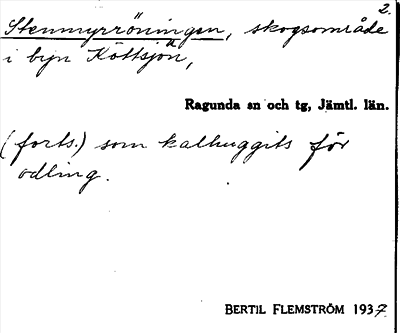 2.
Stenmyrröningen, skogsområde
i byn Köttsjön,
Ragunda sn och tg, Jämtl. län.
(forts.) som kalhuggits för
odling.
BERTIL FLEMSTRÖM 1937.